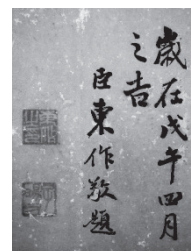 歲在戊午四月
之吉
臣東作敬題